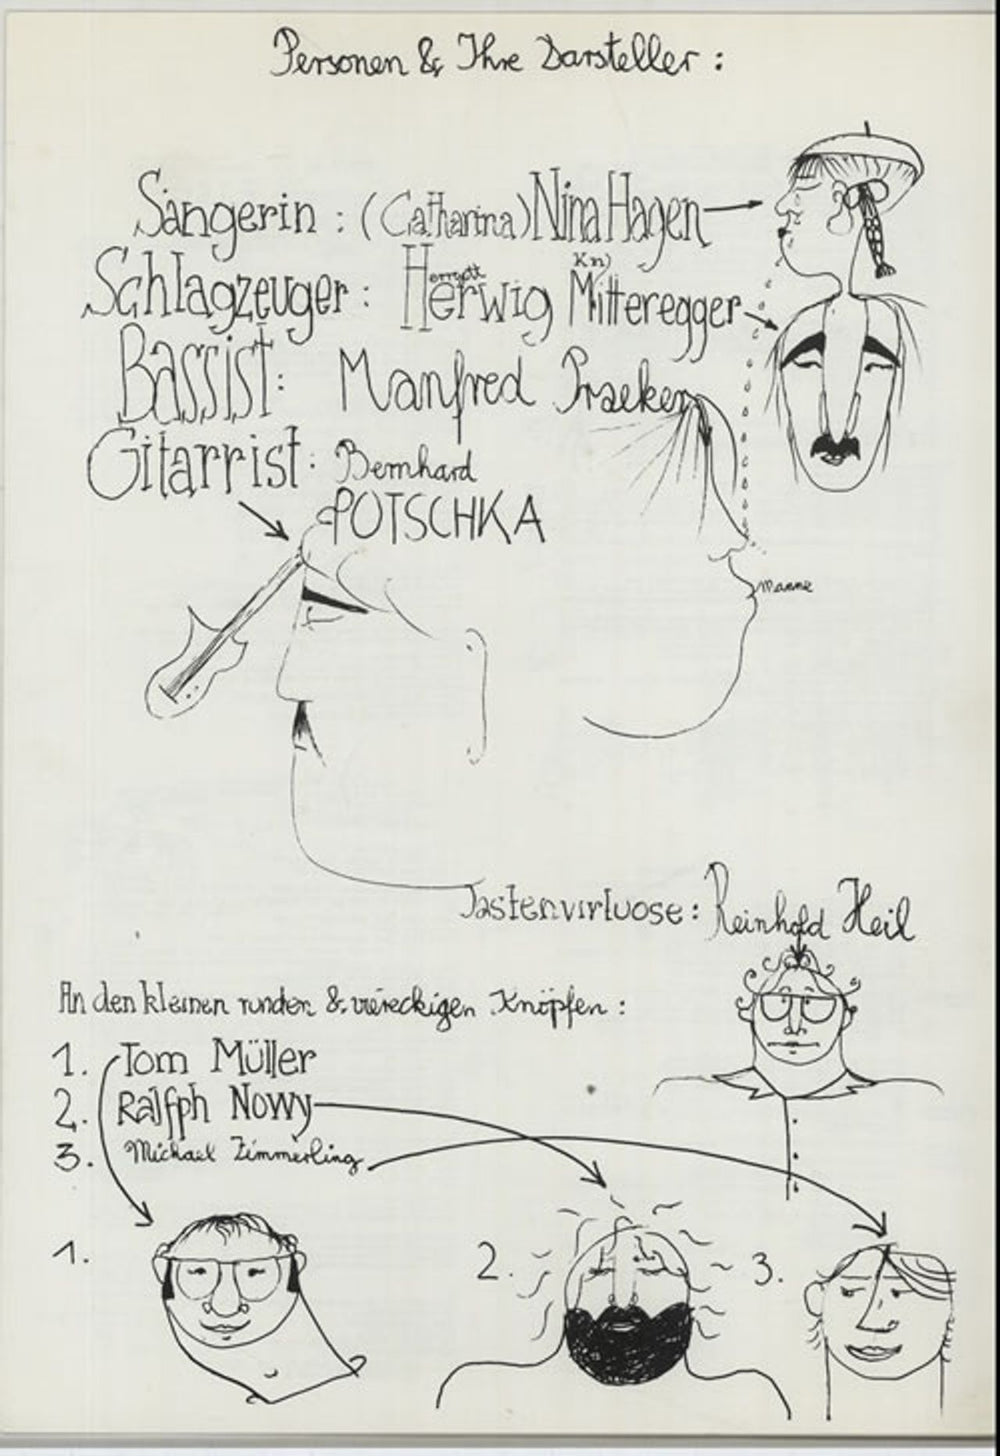 Personen & Ihre Darsteller :
Sängerin : (Catharina) Nina Hagen
Schlagzeuger : Herwig Mitteregger
Kn)
Bassist : Manfred Praeker
Gitarrist : Bernhard
POTSCHKA
Manne
Tastenvirtuose : Reinhold Heil
An den kleinen runden & viereckigen Knöpfen :
1. Tom Müller
2. Ralfph Nowy
3. Michael Zimmerling
1.
2.
3.